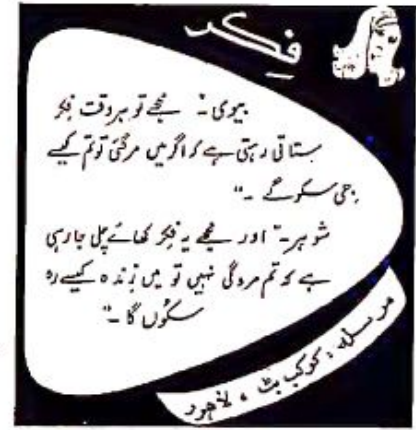 فکر
بیوی۔" مجھے تو ہر وقت فکر
ستاتی رہتی ہے کہ اگر میں مر گئی تو تم کیسے
جی سکو گے ۔"
شوہر۔" اور مجھے یہ فکر کھائے چلی جا رہی
ہے کہ تم مرو گی نہیں تو میں زندہ کیسے رہ
سکوں گا ۔"
مرسلہ : کوکب بٹ ، لاہور